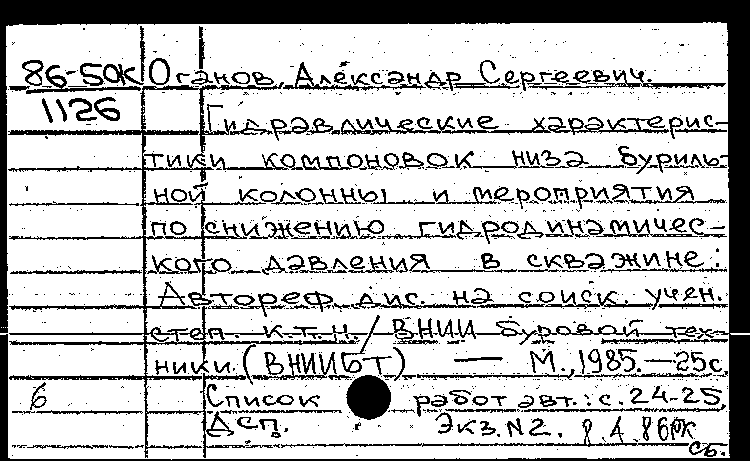 86-50К Оганов, Александр Сергеевич.
1126
Гидравлические характерис-
тики компоновок низа буриль-
ной колонны и мероприятия
по снижению гидродинамичес-
кого давления в скважине:
Автореф. дис. на соиск. учен.
степ. к.т.н. / ВНИИ буровой тех-
ники (ВНИИБТ) — М., 1985. — 25с.
б Список работ авт.: с. 24-25.
ДСП. Экз. N2. 8.4.86РК
сб.